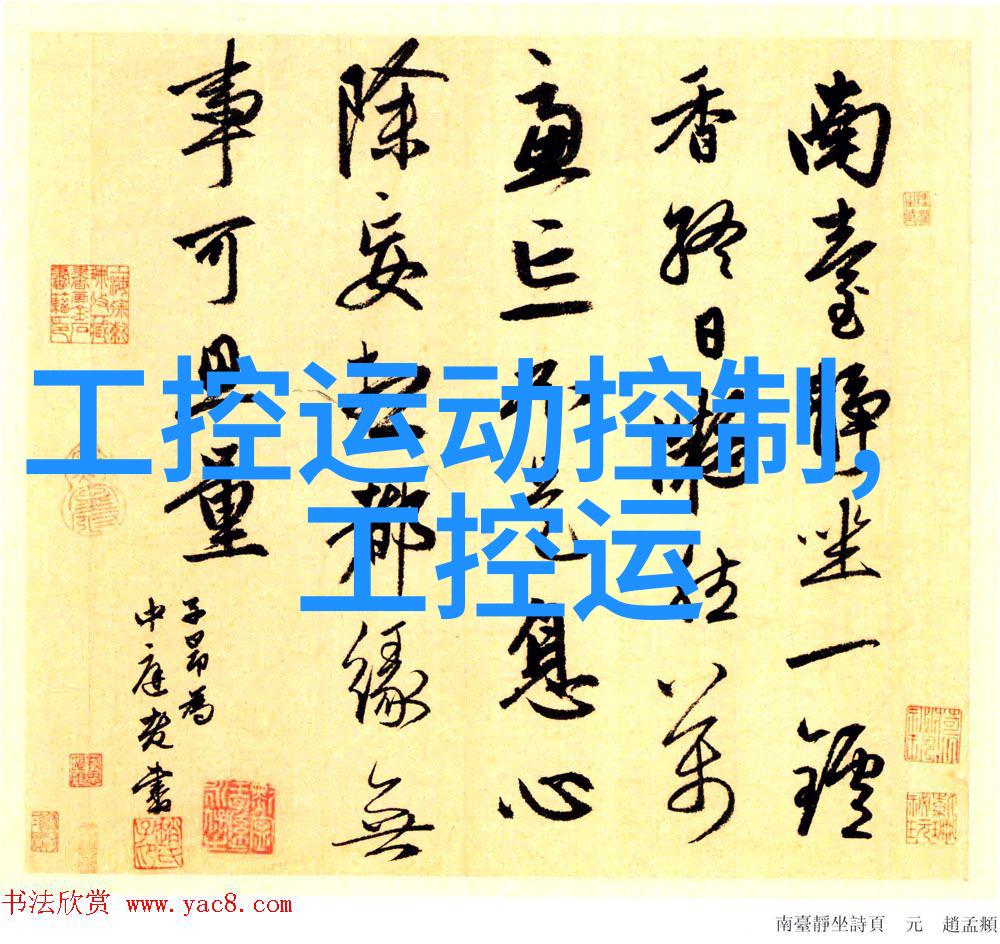 南臺靜坐一鑪
香終日凝然萬
慮亡不是息心
除妄想都緣無
事可思量
子昂為
中庭老書
工控运动控制,
工控运
书法欣赏 www.yac8.com
南臺靜坐詩頁 元 趙孟頫